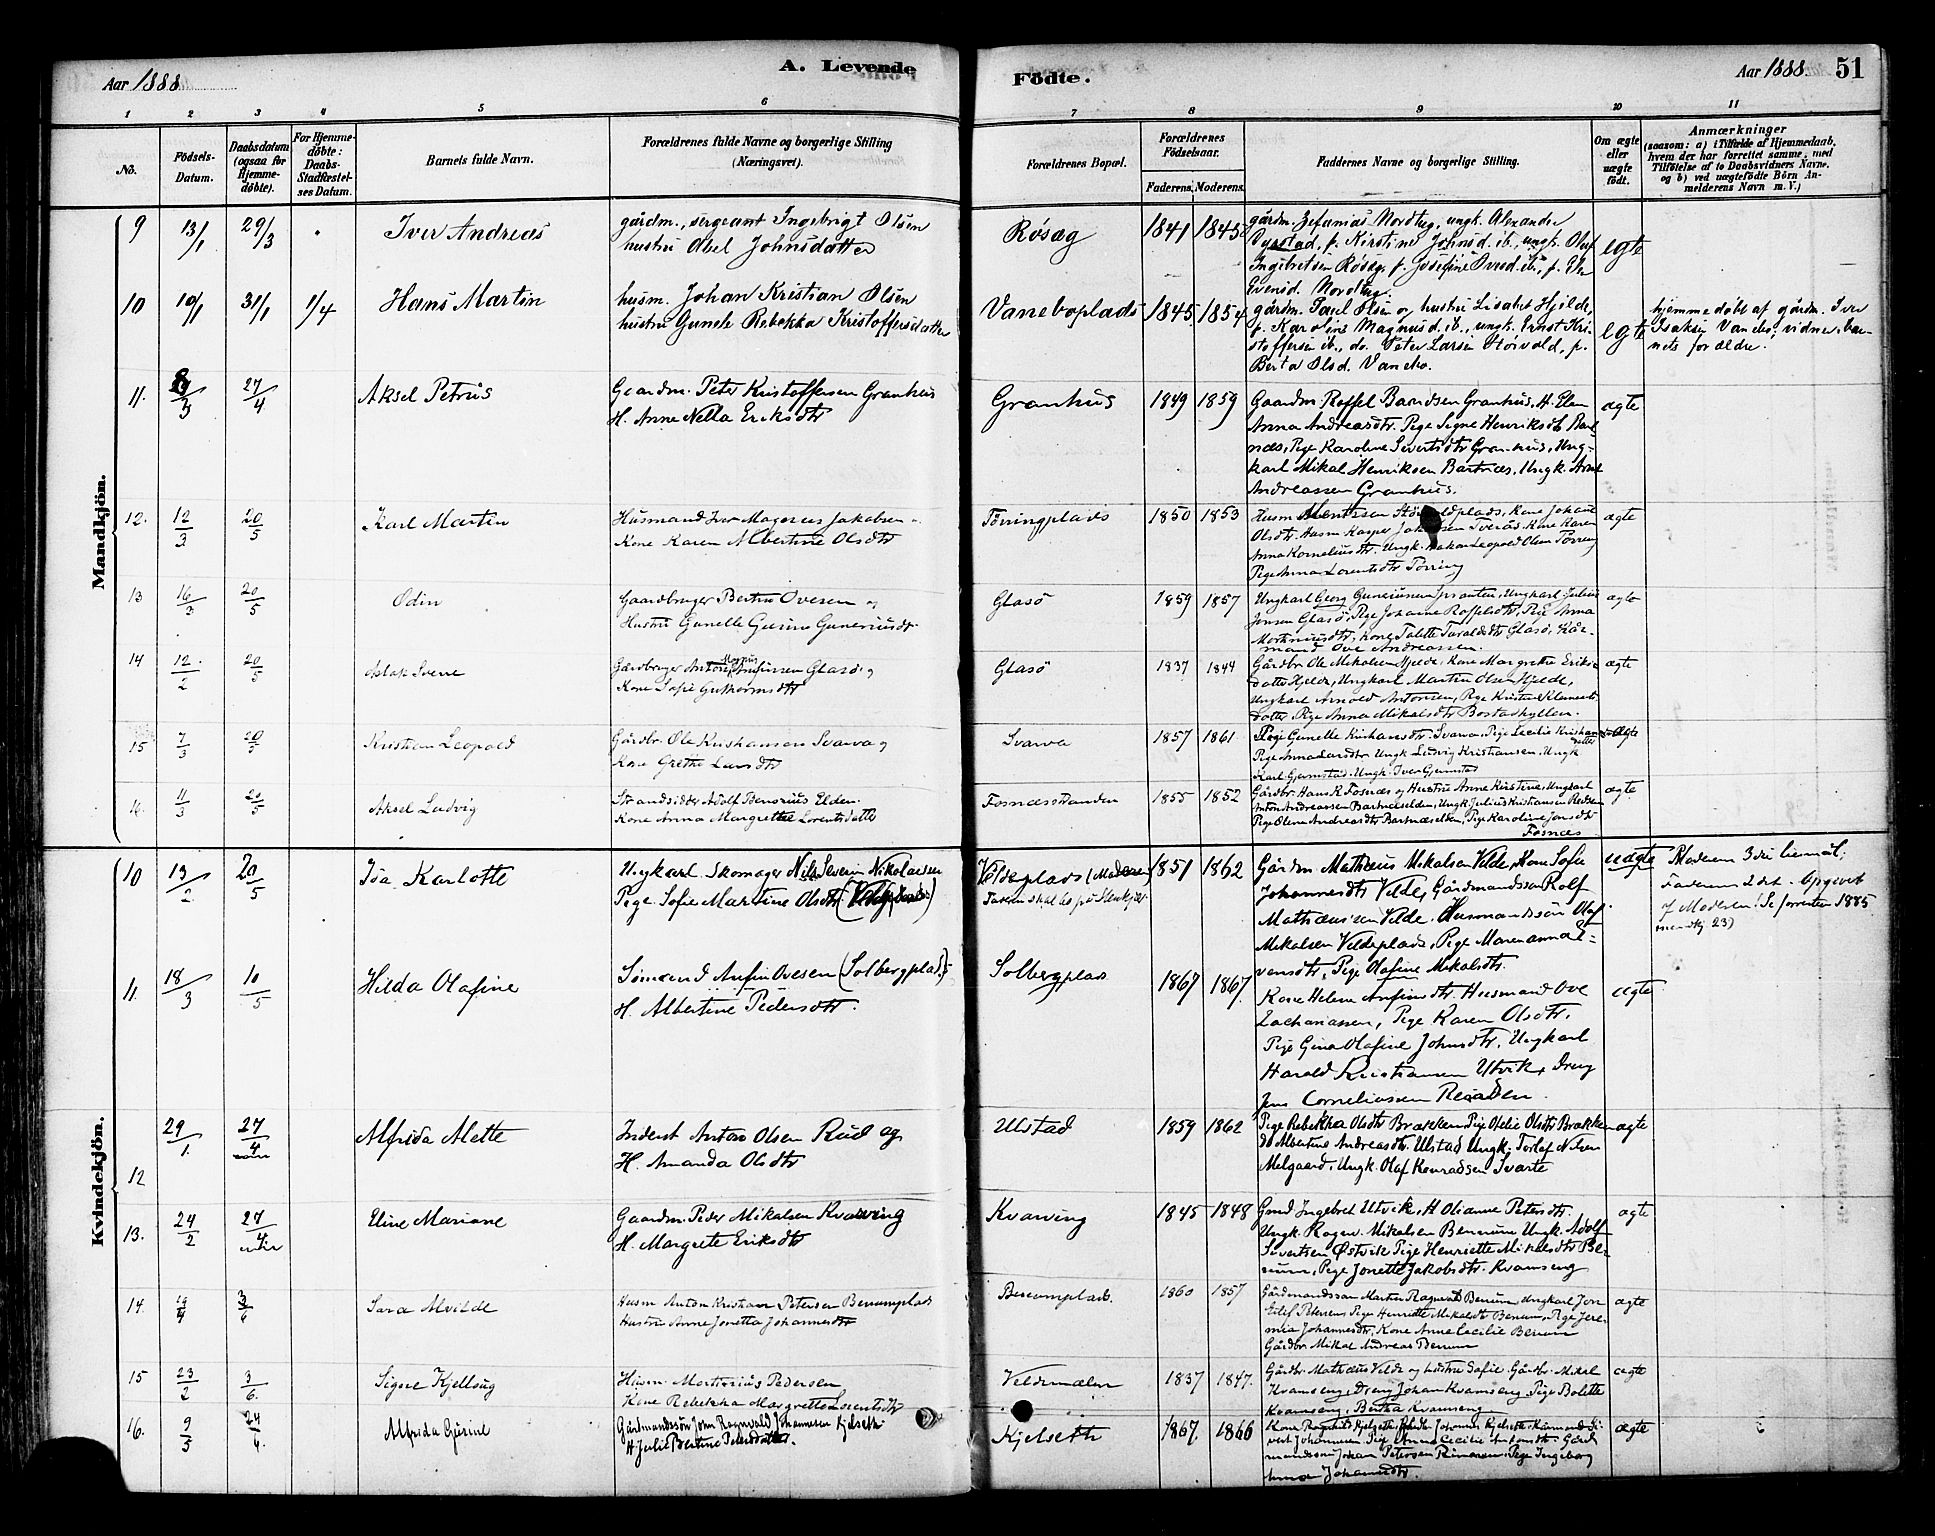 Aar 1888
A. Levende
Födte.
Aar 1888.
51
1 2 3 4 5 6 7 8 9 10 11
No.
Födsels-Datum.
Daabsdatum (ogsaa for Hjemme-döbte).
For Hjemme-döbte: Daabs-Stadfæstel-ses Datum.
Barnets fulde Navn.
Forældrenes fulde Navne og borgerlige Stilling (Næringsvei).
Forældrenes Bopæl.
Forældrenes Födselsaar.
Faderens. Moderens.
Faddernes Navne og borgerlige Stilling.
Om ægte eller uægte födt.
Anmærkninger
(saasom: a) i Tilfælde af Hjemmedaab, hvem der har forrettet samme, med Tilföielse af to Daabsvidners Navne. og b) ved uægtefödte Börn Anmelderens Navn m. V.)
Mandkjön.
9 13/1 29/3 Iver Andreas
gårdm., sergeant Ingebrigt Olsen
hustru Obel Johnsdatter
Røsæg 1841 1845
gårdm. Zefanias Nordteg, ungk. Alexander
Dyrstad, p. Kirstine Johnsd. ib., ungk. Oluf
Ingebretsen Røsæg, p. Josefine
Evensd. Nordteg.
egte
10 10/1 31/1 1/4 Hans Martin
husm. Johan Kristian Olsen
hustru Gunele Rebekka Kristoffersdatter
Vaneboplads 1845 1854
gårdm. Paul Olsen og hustru Lisabet Hjelde,
p. Karoline Magnusd. ib., ungk. Ernst Kri-
stoffersen ib., do. Peter Larsen Støivald, p.
Berta Olsd. Vanebo.
egte
hjemmedøbt af gårdm. Iver
Isaksen Vanebo; vidner: bar-
nets forældre.
11. 27/4 Aksel Petrus
Gaardm. Peter Kristoffersen Granhus
H. Anne Nella Eriksdtr
Granhus 1849 1859
Gaardm. Roffel Baardsen Granhus, H. Elen
Anna Andreasdtr. Pige Signe Henriksdtr Bart-
næs, Pige Karoline Sivertsdtr Granhus, Ung-
karl Mikal Henriksen Bartnæs, Ungk. Arne
Andreassen Granhus.
ægte
12. 12/3 20/5 Karl Martin
Husmand Iver Magnus Jakobsen
Kone Karen Albertine Olsdtr
Tørringplads 1850 1853
Olsdtr. Husm Kasper
Anna Korneliusdtr. Ungk. Leopold Olsen Tørring
Pige Anna Lorentsdtr Tørring
ægte
13 16/3 20/5 Odin
Gaardbruger Bertin Ovesen og
Hustru Gunelle Gusine Guneriusdtr
Glasø 1859 1857
Ungkarl Georg Guneriussen, Ungkarl Julius
Jensen Glasø, Pige Johanne Roffelsdtr, Pige Anna
Martiniusdtr, Kone Talette Taraldsdtr Glasø, Kår-
mand Ove Andreassen.
ægte
14 12/2 20/5 Aslak Svene
Gaardbruger Anton Magnus Anfinssen Glasø og
Kone Sofie Guthormsdtr
Glasø 1837 1844
Gårdbr. Ole Mikalsen Hjelde, Kone Margrethe Eriks-
datter Hjelde, Ungkarl Martin Olsen Hjelde,
Ungkarl Arnold Antonsen, Pige Kristine Klements-
datter, Pige Anna Mikalsdtr Bostadhyllen.
ægte
15 7/3 20/5 Kristian Leopold
Gårdbr. Ole Kristiansen Svarva og
Kone Grethe Larsdtr
Svarva 1857 1861
Pige Gunelle Kristiansdtr. Svarva, Pige Cecilie Kristiansdatter
Pige Anna Larsdtr Ungk Ludvig Kristiansen, Ungk
Karl Gjermstad. Ungk. Iver Gjermstad
Ægte
16. 11/3 20/5 Aksel Ludvig
Strandsidder Adolf Benonius Elden
Kone Anna Margrethe Lorentsdatter
Fosnæsstranden 1855 1852
Gårdbr Hans R. Fosnæs og Hustru Anne Kristine, Ungkarl
Anton Andreassen Bartnæselden, Ungk Julius Kristiansen
Pige Oline Andreasdtr Bartnæselden, Pige Karoline Jonsdtr
Fosnæs
ægte
Kvindekjön.
10 13/2 20/5 Ida Karlotte
Ungkarl. Skomager Nils Severin Nikolaisen
Pige Sofie Martine Olsdtr (Veldeplads)
Veldeplads (Moderen) 1851 1862
Faderen skal bo på Stenkjær
Gårdm Mathæus Mikalsen Velde, Kone Sofie
Johannesdtr Velde, Gårdmandssøn Rolf
Mathæusen Velde, Husmandssøn Olaf
Mikalsen Veldeplads, Pige Marenanna
vensdtr, Pige Olafine Mikalsdtr.
uægte
Moderens 3die Leiermål;
Faderens 2det. Opgivet
af Moderen! Se forresten 1885
mandkj. 23)
11. 18/3 10/5 Hilda Olafine
Sømand Anfin Ovesen (Solbergplads)
H. Albertine Pedersdtr.
Solbergplads 1867 1867
Kone Helene Anfinsdtr. Husmand Ove
Zachariassen, Pige Karen Olsdtr.
Pige Gina Olafine Johnsdtr, Ungkarl
Harald Kristiansen Utvik, Dreng
Jens Corneliussen
ægte
12 29/1 27/4 Alfrida Alette
Inderst Anton Olsen Rud og
H. Amanda Olsdtr
Ulstad 1859 1862
Pige Rebekka Olsdtr Brækken Pige Ofelie Olsdtr Brækken
do Albertine Andreasdtr. Ulstad Ungk. Torlaf Nilsen
Melgaard, Ungk. Olaf Konradsen Svarte
ægte
13. 24/2 27/4 Eline Mariane
Gaardm. Peder Mikalsen Kvarving
H. Margrete Eriksdtr
Kvarving 1845 1848
Gmd Ingebret Utvik, H Olianne Petersdtr.
Ungk. Ragnv. Mikalsen Benrum Ungk. Adolf
Sivertsen Østvik Pige Henriette Mikalsdtr Be-
num, Pige Jonette Jakobsdtr. Kvamseng
ægte
14. 19/4 3/6 Sara Alvilde
Husm Anton Kristian Petersen Benumplads
Hustru Anne Jonetta Johannesdtr
Benumplads. 1860 1857
Gårdmandssøn Martin Ragnvald Benum, Ungkarl Jon
Edlef Petersen, Pige Henriette Mikalsdtr Benum, Pige Jere-
mia Johannesdtr, Kone Anne Cecilie Benum
Gårdbr Mikal Andreas Benum
ægte
15 23/2 3/6. Signe Kjellaug
Husm. Martinius Pedersen
Kone Rebekka Margrethe Lorentsdtr
Veldemælen 1837 1847.
Gårdbr. Mathæus Velde og hustru Sofie. Gårdbr. Mikal
Kvamseng, Dreng Johan Kvamseng, Pige Bolette
Kvamseng, Bertha Kvamseng
ægte
16. 9/3 24/4. Alfrida Gusine
Gårdmandssøn John Ragnvald Johannesen Kjelseth
H Julie Bertine Pedersdatter.
Kjelseth 1867 1866
Kone Ragnhild Kjelseth, Johannes Kjelseth, Kårmand Si-
vert Johannesen, Pige Anna Cecilie Antonsdtr. Gård-
mandssøn Johan Petersen, Pige Ingeborg
Anna Johannesdtr.
ægte